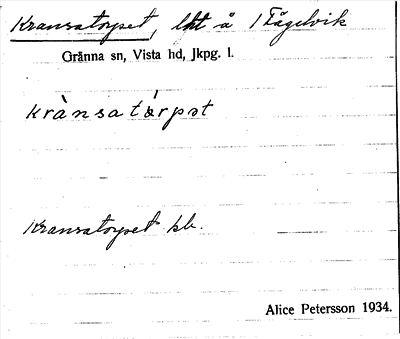 Kransatorpet, lht å 1 Fågelvik
Gränna sn, Vista hd, Jkpg. l.
krànsatórpət
Kransatorpet kb.
Alice Petersson 1934.